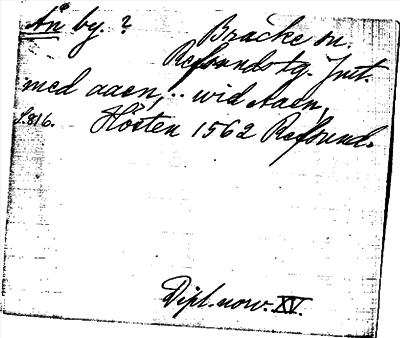 Ån by. ?
Bräcke sn.
Refsundstg. Jmt.
med aaen, .. wid Aaen,
s. 816. Hösten 1562 Refsund.
Dipl. norv. XV.